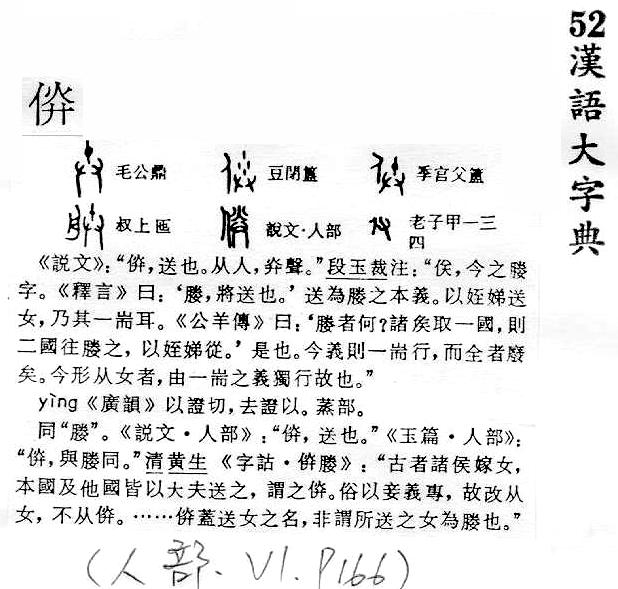 52漢語大字典
倴
毛公鼎 豆閉簋 季官父簠
叔上匜 說文·人部 老子甲一三四
《說文》：“倴，送也。从人，灷聲。”段玉裁注：“倴，今之媵
字。《釋言》曰：‘媵，將送也。’送為媵之本義。以姪娣送
女，乃其一耑耳。《公羊傳》曰：‘媵者何？諸矦取一國，則
二國往媵之，以姪娣從。’是也。今義則一耑行，而全者廢
矣。今形从女者，由一耑之義獨行故也。”
yìng《廣韻》以證切，去證以。蒸部。
同“媵”。《說文·人部》：“倴，送也。”《玉篇·人部》：
“倴，與媵同。”清黃生《字詁·倴媵》：“古者諸侯嫁女，
本國及他國皆以大夫送之，謂之倴。俗以妾義專，故改从
女，不从倴。……倴蓋送女之名，非謂所送之女為媵也。”
（人部、V1.P166）